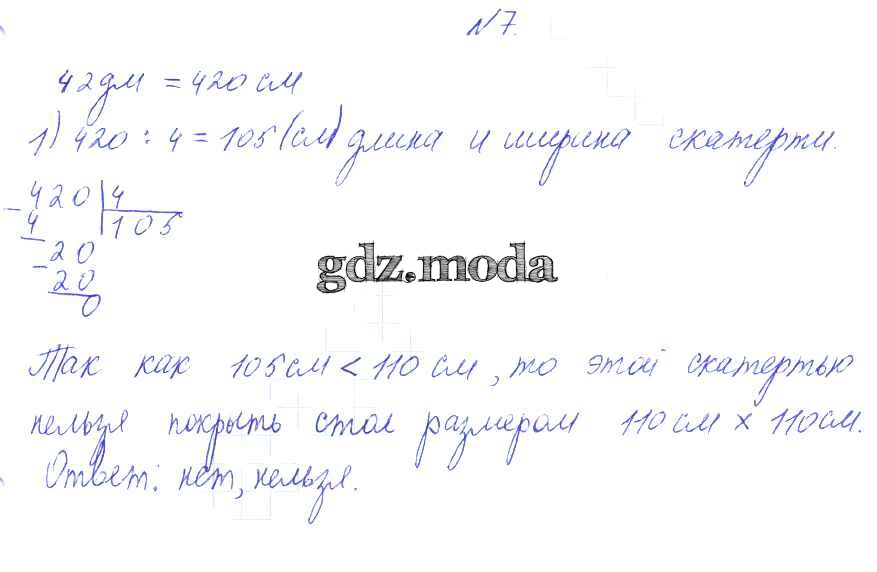 №7.
42дм = 420 см
1) 420 : 4 = 105 (см) длина и ширина скатерти.
- 420 | 4
4 | 105
- 20
20
0
gdz.moda
Так как 105 см < 110 см, то этой скатертью
нельзя покрыть стол размером 110 см × 110 см.
Ответ: нет, нельзя.